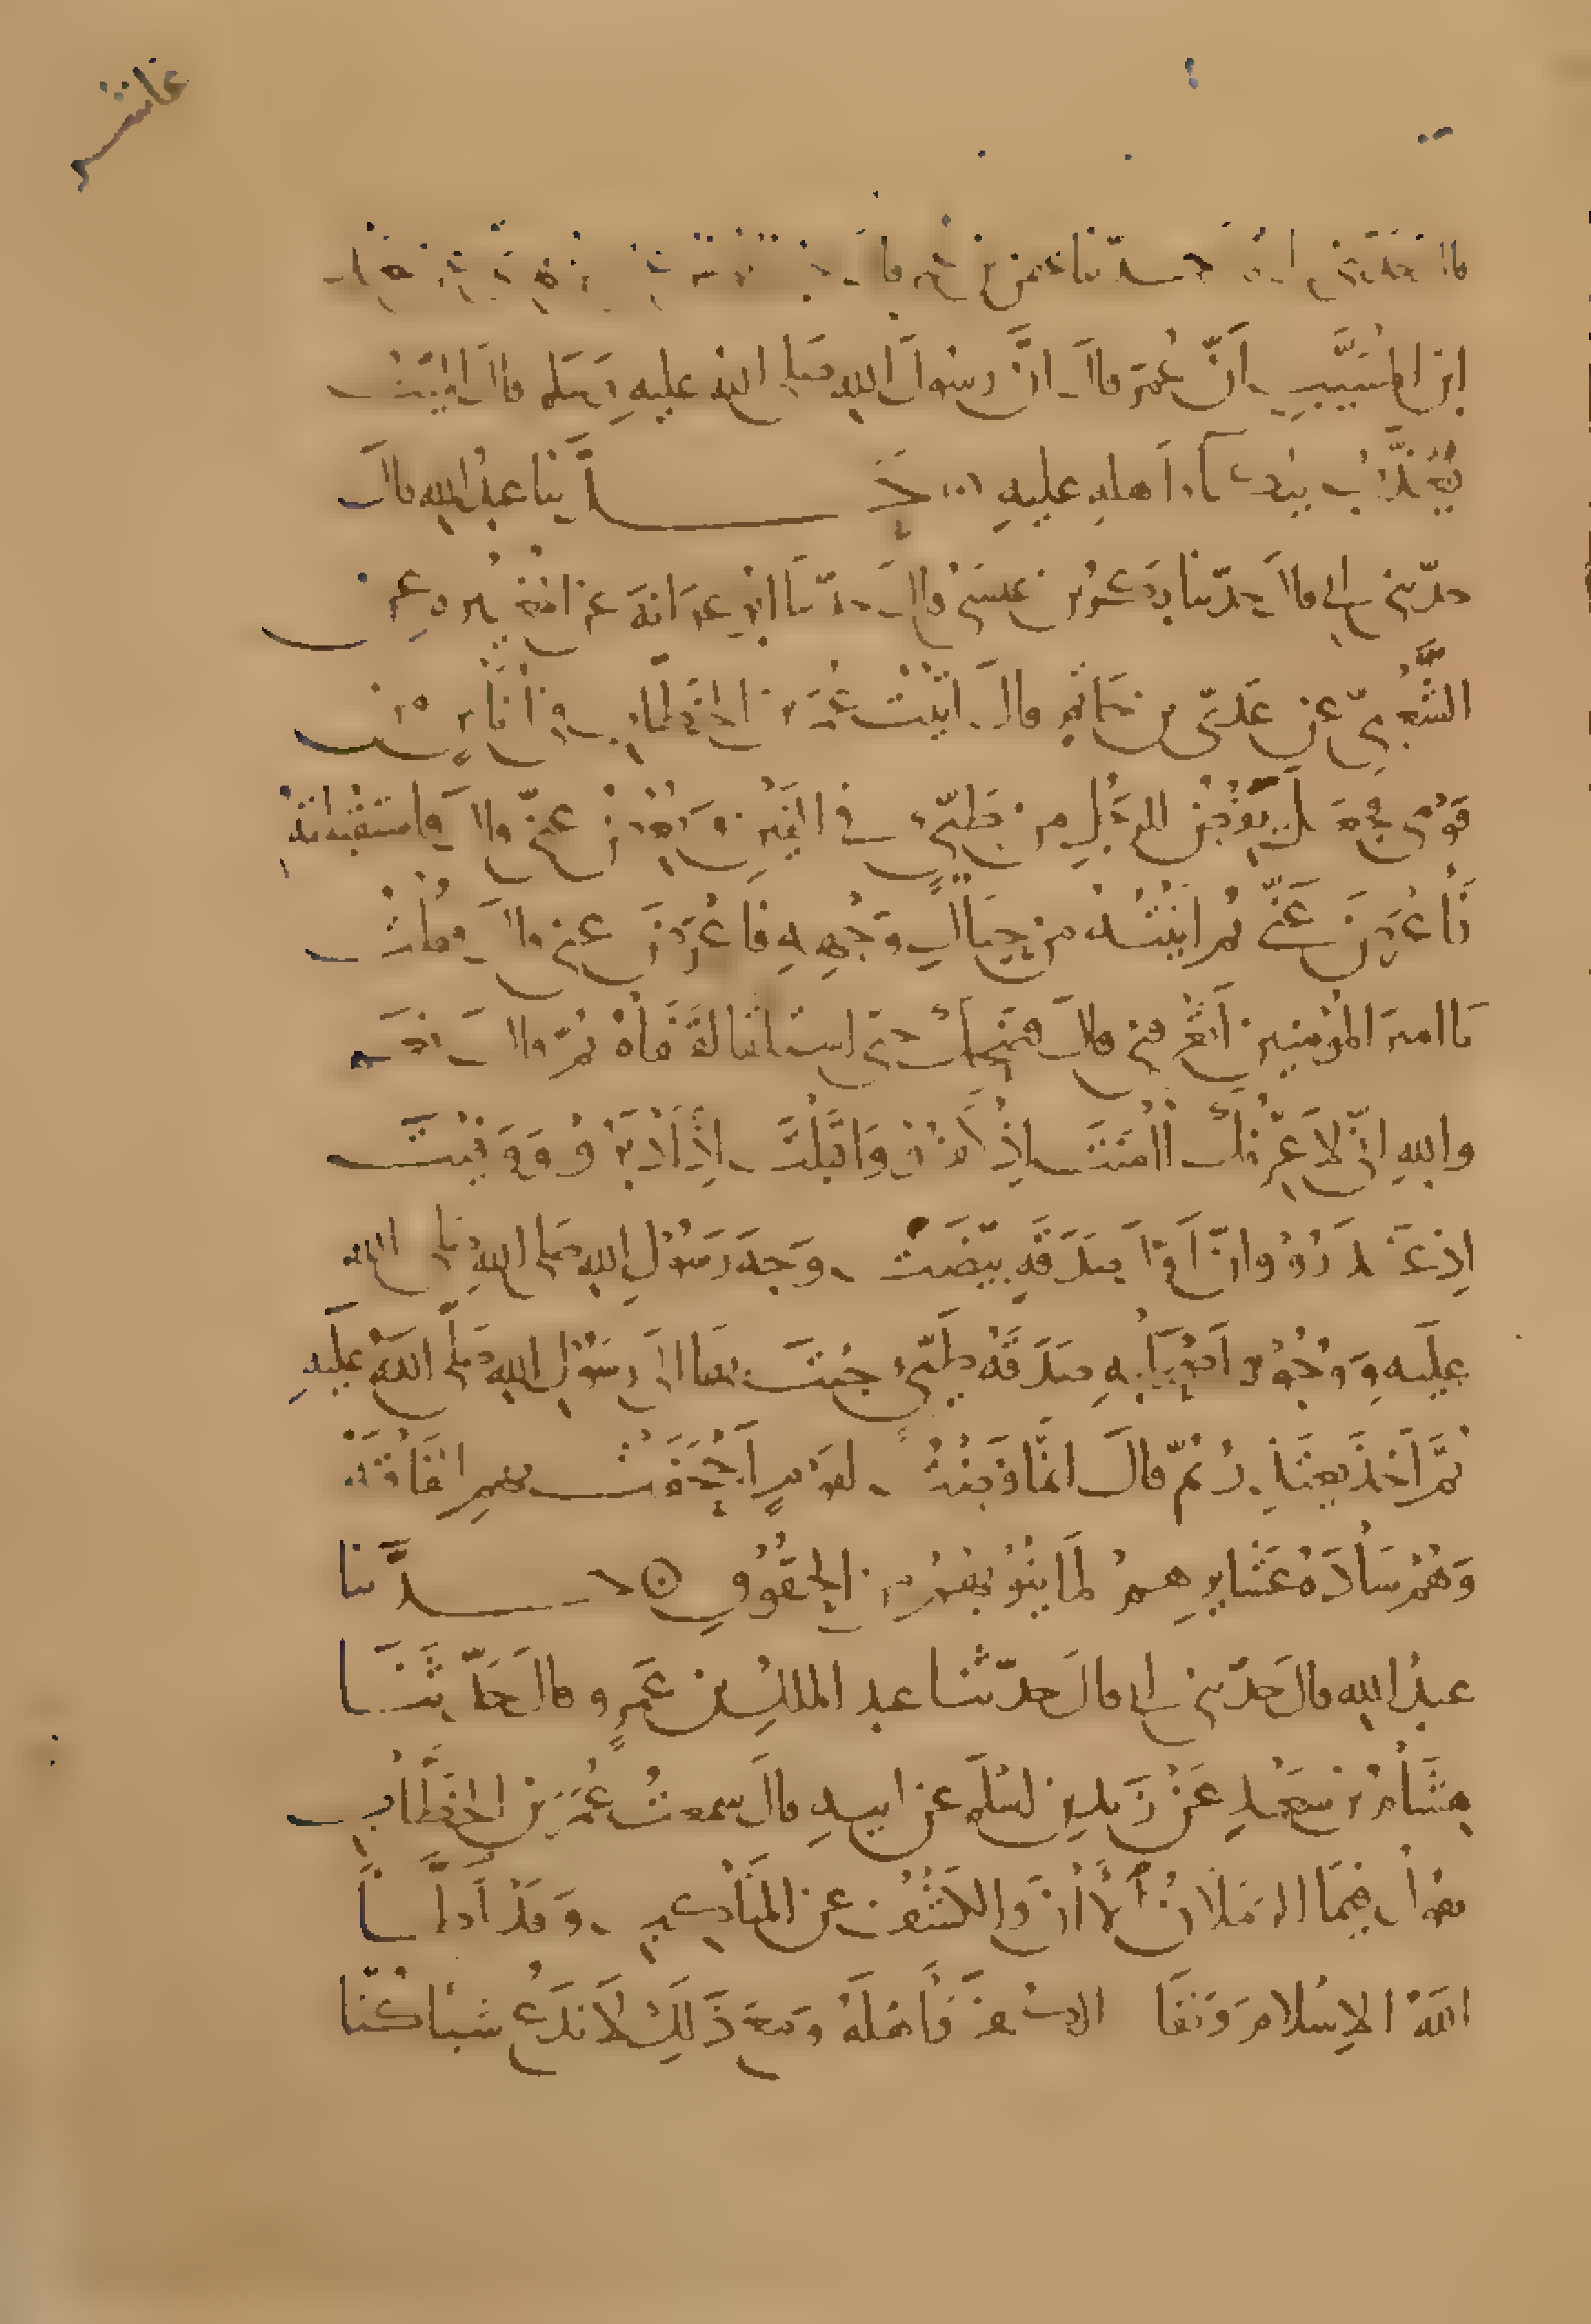 عاشر
ابن المُسَيَّبِ أنّ عُمَرَ قال انَّ رسُولَ اللهِ صلى الله عليهِ وَسَلم قال المَيّتُ
يُعَذَّبُ ببُكاءِ اَهلهِ عليهِ حَدَّثنا عبدُ الله قال
حدّثني ابي قال حدّثنا بَكر بن عيسَى قال حدّثنا ابو عَوَانَة عن المُغِيرة عن
الشَّعْبِيّ عن عَدِيّ بن حَاتِمٍ قال اَتَيْتُ عُمَرَ بن الخَطَّابِ في اُنَاسٍ من
قَوْمِي فجعَلَ يَفرِضُ للرَّجُلِ من طَيّئٍ في اَلْفَينِ ويُعْرِضُ عنّي قال فَاستَقْبَلتُهُ
فأعْرَضَ عَنِّي ثم اَتَيْتُهُ من حِيَالِ وَجْهِهِ فاعْرَضَ عني قال فقُلتُ
يا امير المُؤمنين اَتَعْرفني قال فضَحِكَ حتى استلقا لقَفَاهُ ثمّ قال نعَم
والله انّي لاَعْرِفُكَ اٰمَنتَ اِذْ كَفَرُوا وَاَقْبَلْتَ اِذْ اَدْبَرُوا وَوَفَيْتَ
اِذ غَدَرُوا وانّ اَوّلَ صَدَقَةٍ بيّضَتْ وَجهَ رَسُولِ الله صلى الله
عليه وَوُجُوهَ اَصْحَابِهِ صَدَقَةُ طَيّئٍ جئتَ بها الى رسُولِ اللهِ صَلّى اللهُ عليهِ
ثمَّ اَخَذَ يعتَذِرُ ثمّ قالَ انّما فَرَضْتُ لقَوْمٍ اَجْحَفَتْ بهمِ الفَاقَةُ
وَهُمْ سَادَةُ عَشَايرِهِمْ لمَا يَنُوْبُهُمْ من الحُقُوقِ حدَّثنا
عبدُ الله قال حَدّثني ابي قال حَدّثنا عبد الملكِ بن عَمرٍو قال حَدّثَنَا
هِشَامُ بن سَعْدٍ عَنْ زَيدِ بن اسْلَم عن ابيهِ قالَ سمعتُ عُمَرَ بنَ الخطَّابِ
يقولُ فيمَا الرَمَلَانُ الاٰنَ والكَشْفُ عن المَنَاكِبِ وَقَدْ اَطَّأَ
اللهُ الاِسْلامَ وَنَفَا الكُفْرَ وَاَهْلَهُ ومَعَ ذَلِكَ لاَ نَدَعُ شيئا كُنّا